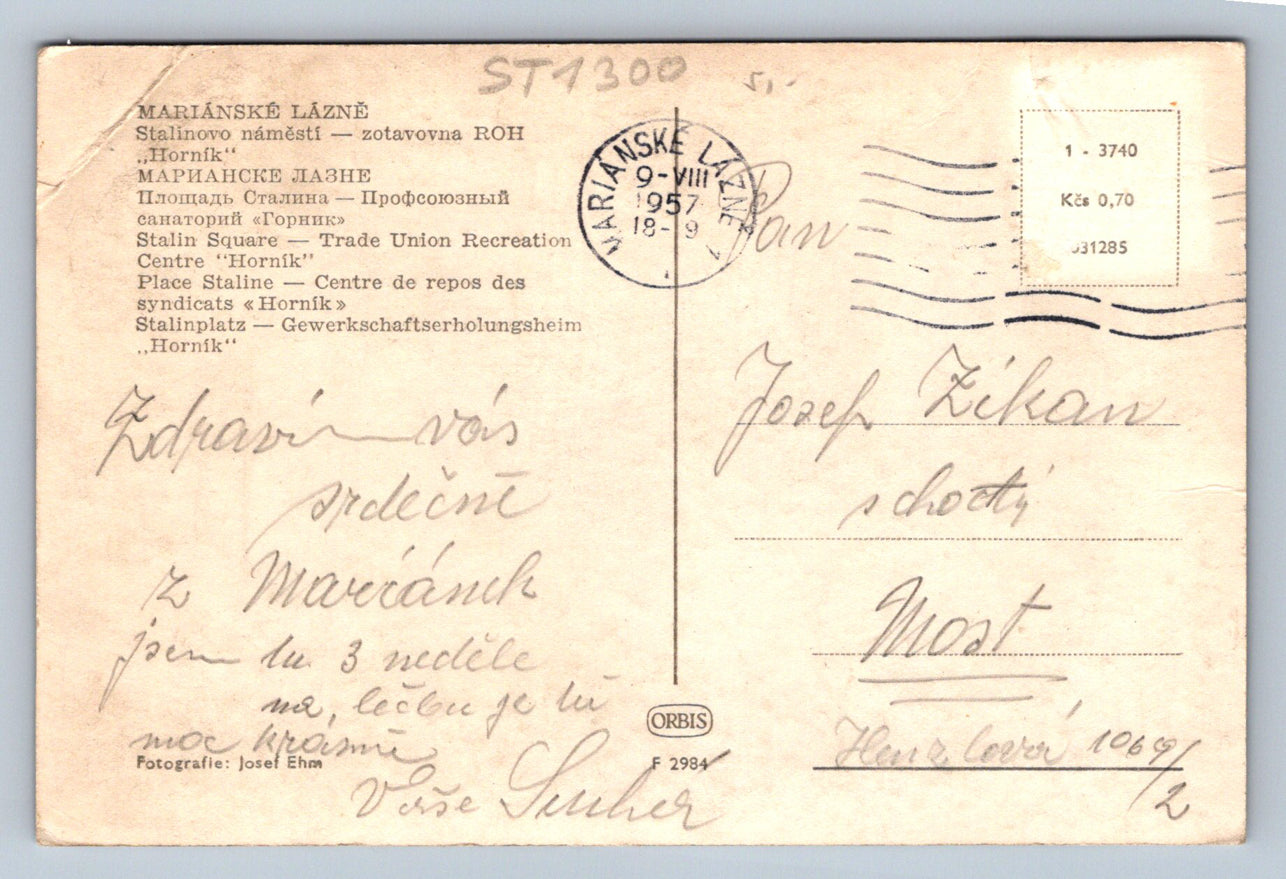 ST1300
5,-
MARIÁNSKÉ LÁZNĚ
Stalinovo náměstí — zotavovna ROH
„Horník“
МАРИАНСКЕ ЛАЗНЕ
Площадь Сталина — Профсоюзный
санаторий «Горник»
Stalin Square — Trade Union Recreation
Centre “Horník”
Place Staline — Centre de repos des
syndicats «Horník»
Stalinplatz — Gewerkschaftserholungsheim
„Horník“
Zdraví vás
srdečně
z Mariánek
jsem tu 3 neděle
na léčbu je tu
moc krásně
Vaše
Fotografie: Josef Ehm
MARIÁNSKÉ LÁZNĚ
9-VIII
1957
18-19
1 - 3740
Kčs 0,70
031285
Pan
Josef Zíkan
Most
1069/2
ORBIS
F 2984